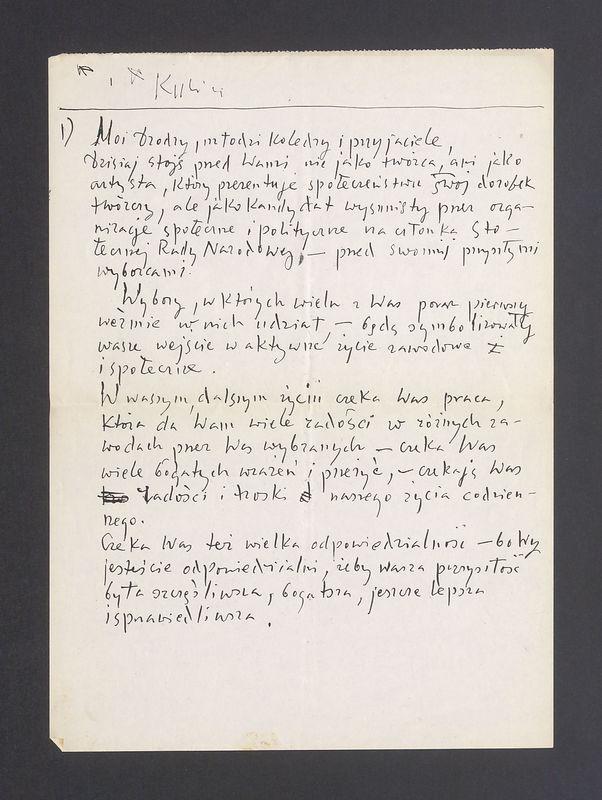 1) Moi drodzy, młodzi koledzy i przyjaciele,
dzisiaj stoję przed Wami nie jako twórca, ani jako
artysta, który prezentuje społeczeństwu swój dorobek
twórczy, ale jako kandydat wysunięty przez orga-
nizacje społeczne i polityczne na członka Sto-
łecznej Rady Narodowej, — przed swoimi przyszłymi
wyborcami.
Wybory, w których wielu z Was poraz pierwszy
weźmie w nich udział, — będą symbolizowały
wasze wejście w aktywne życie zawodowe
i społeczne.
W waszym, dalszym życiu czeka Was praca,
która da Wam wiele radości w różnych za-
wodach przez Was wybranych — czeka Was
wiele bogatych wrażeń i przeżyć, — czekają Was
radości i troski naszego życia codzien-
nego.
Czeka Was też wielka odpowiedzialność — bo Wy
jesteście odpowiedzialni, żeby wasza przyszłość
była szczęśliwsza, bogatsza, jeszcze lepsza
i sprawiedliwsza.